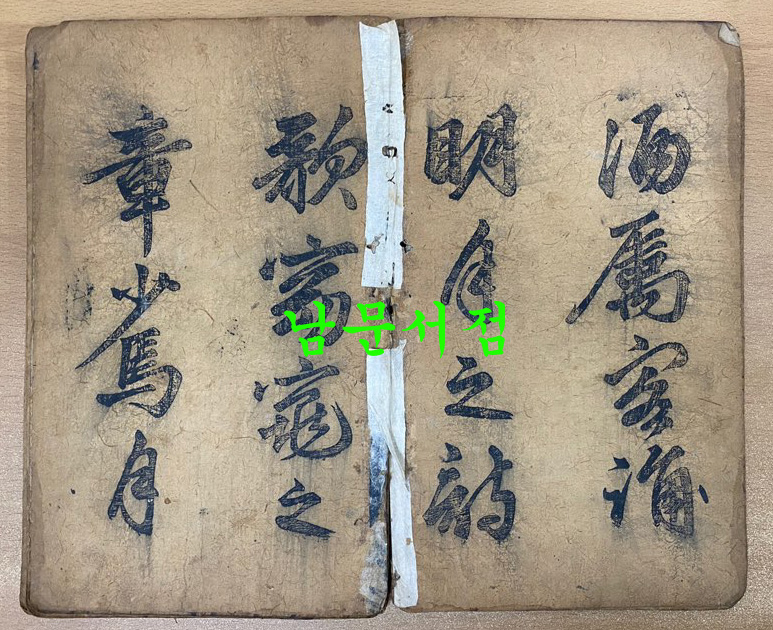 酒属客誦
明月之詩
歌窈窕之
章少焉月
남문서점